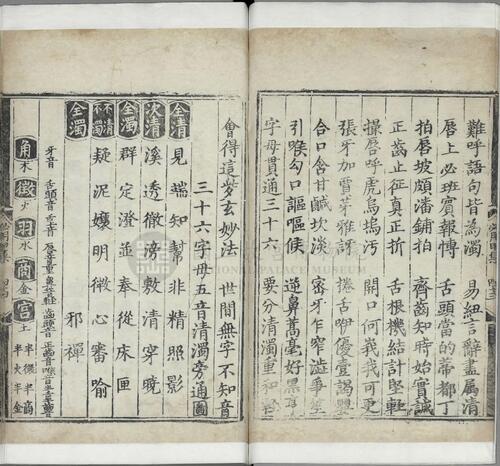 難呼語句皆為濁 易紐言辭盡屬清
唇上必班賓報博 舌頭當的帝都丁
拍唇坡頗潘鋪拍 齊齒知時始實誠
正齒止征真正折 舌根機結計堅輕
撮唇呼虎烏塢污 開口何我我可更
張牙加賈雅訝 捲舌咿優壹謁
合口甘鹹坎淡 牙乍窄溢爭
引喉勾口謳嘔候 逆鼻蒿毫好黑
字母貫通三十六 要分清濁重和輕
會得這些玄妙法 世間無字不知音
三十六字母五音清濁旁通圖
全清 見端知幫非精照影
次清 溪透徹滂敷清穿曉
全濁 群定澄並奉從床匣
不清不濁 疑泥孃明微心審喻
全濁 邪禪
牙音 舌頭音 舌音 唇音重 齒頭音 正齒音 喉音
角木 徵火 羽水 商金 宮土 半徵半商 半火半金
NATIONAL PALACE MUSEUM